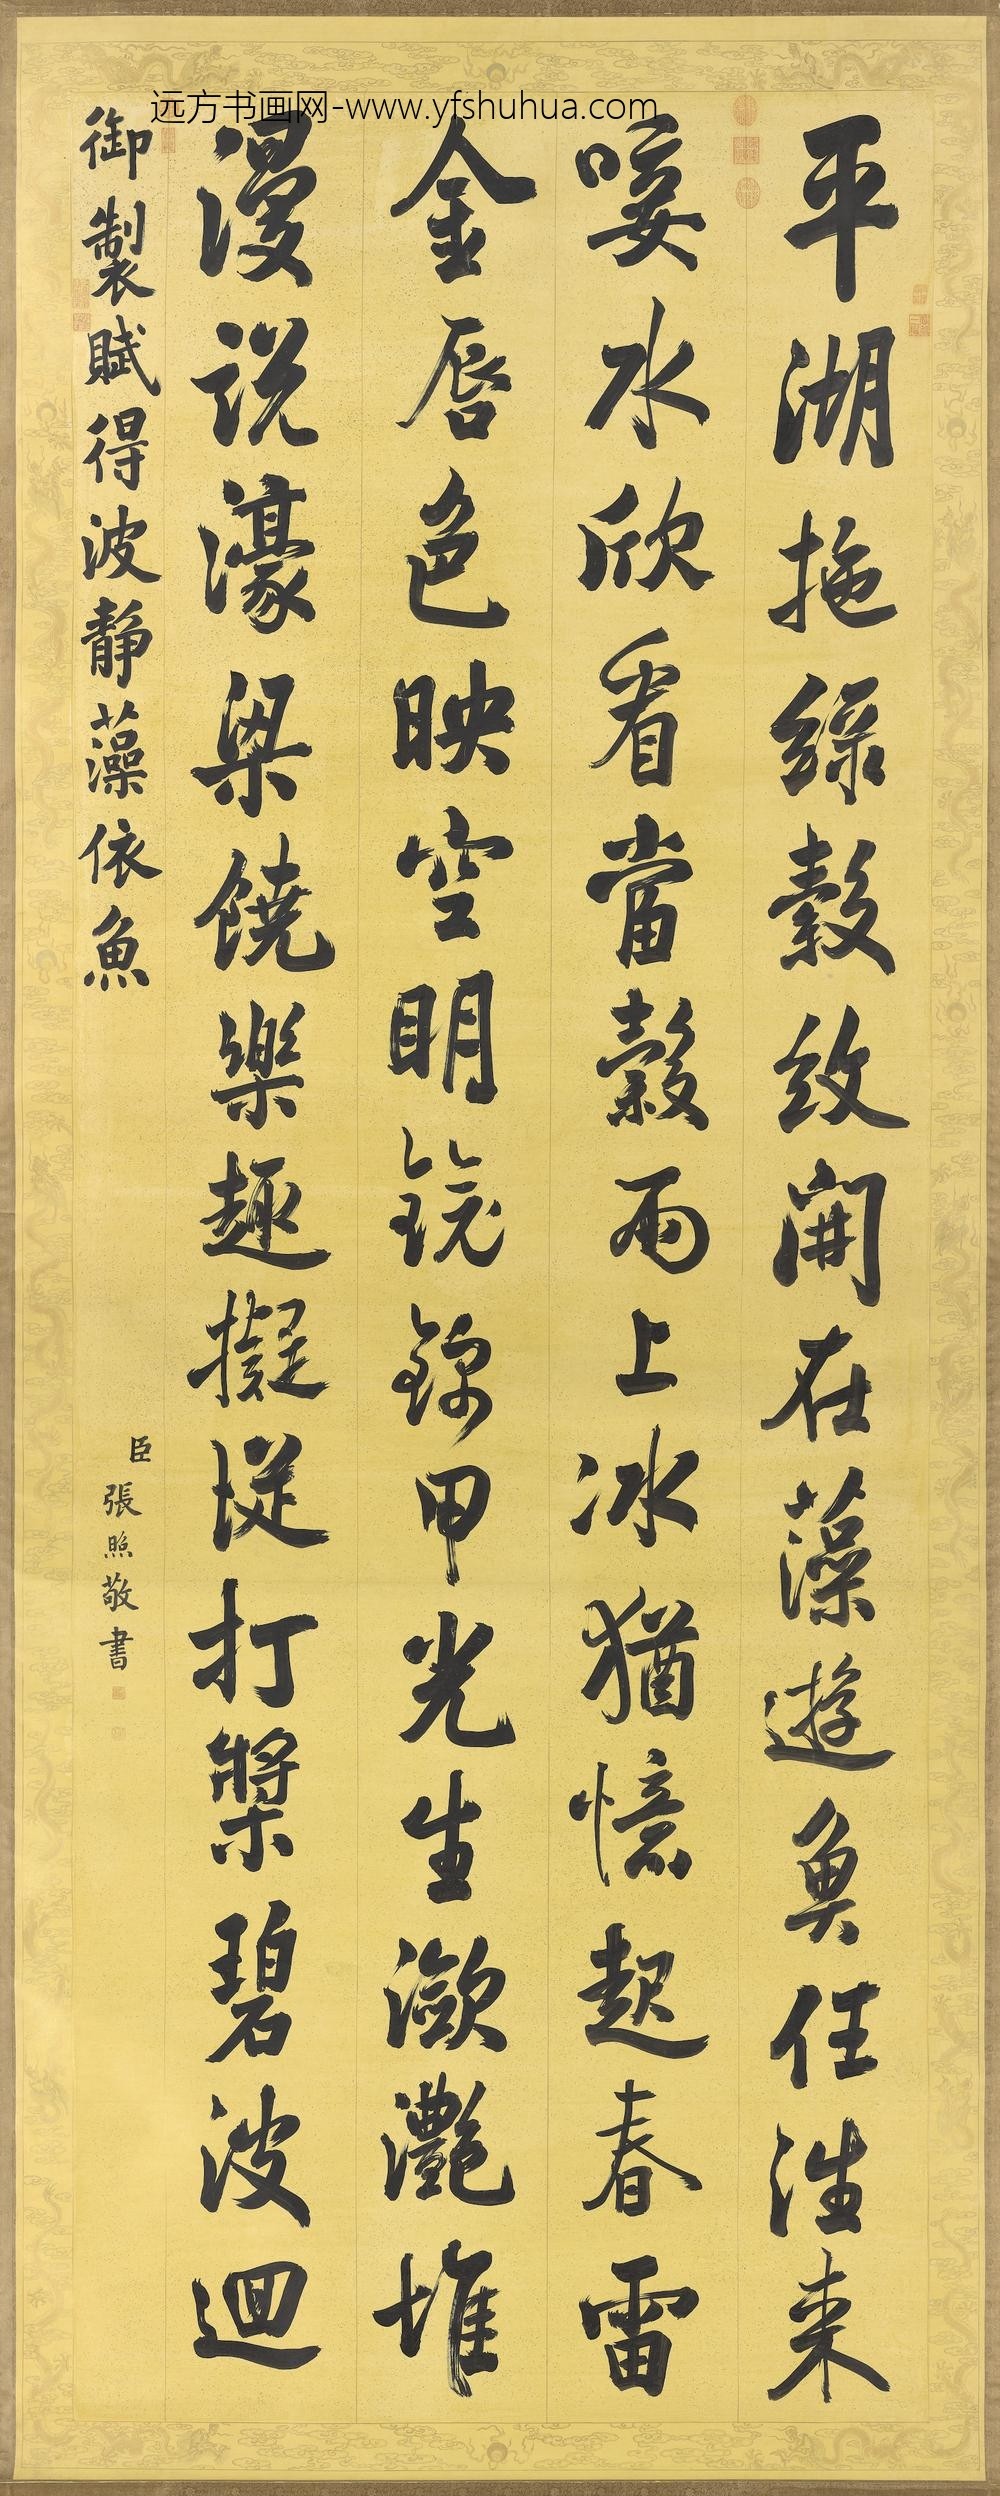 远方书画网-www.yfshuhua.com
平湖拖綠縠紋開在藻遊魚任往來
唼水欣看當穀雨上冰猶憶起春雷
金唇色映空明鏡錦甲光生瀲灧堆
漫說濠梁饒樂趣擬從打槳碧波迴
御製賦得波靜藻依魚
臣張照敬書